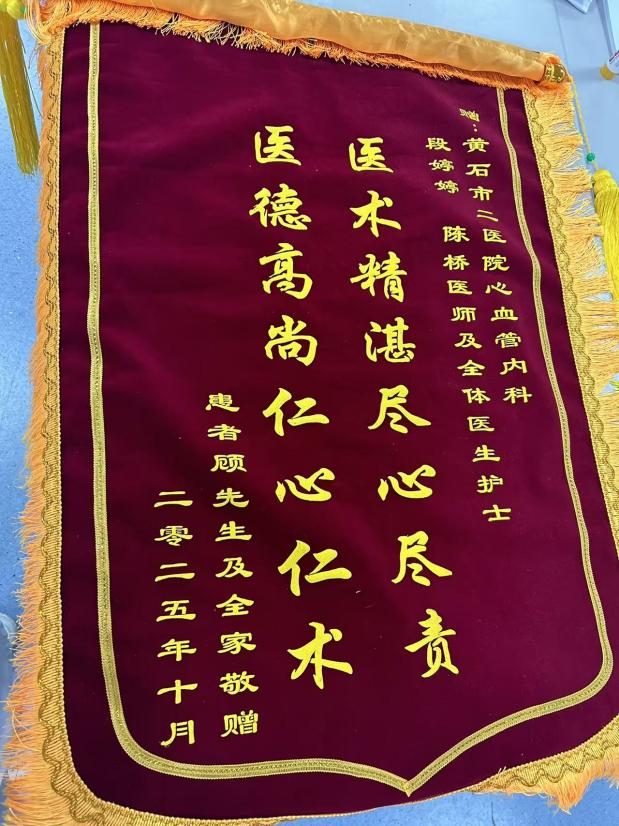 赠：黄石市二医院心血管内科
段婷婷 陈桥医师及全体医生护士
医术精湛尽心尽责
医德高尚仁心仁术
患者顾先生及全家敬赠
二零二五年十月